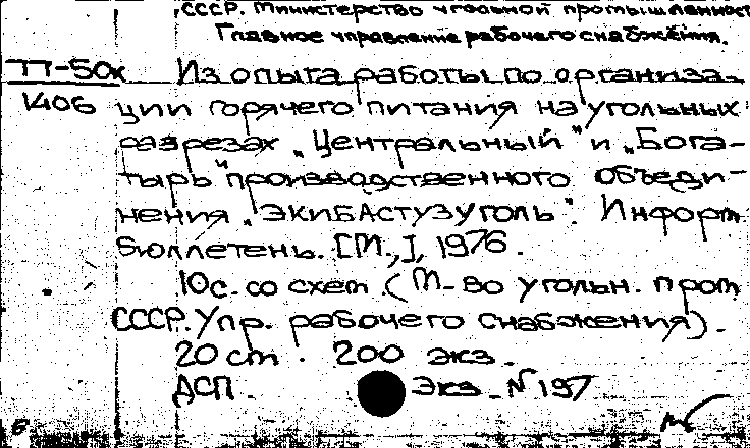 СССР. Министерство угольной промышленност
Главное управление рабочего снабжения.
П-50к Из опыта работы по организа-
1406 ции горячего питания на угольных
разрезах „Центральный" и „Бога-
тырь" производственного объеди-
нения „Экибастузуголь". Информ.
бюллетень. [М.,], 1976.
10с. со схем. (М-во угольн. пром
СССР. Упр. рабочего снабжения).
20 см. 200 экз.
ДСП. Экз. №197
Б